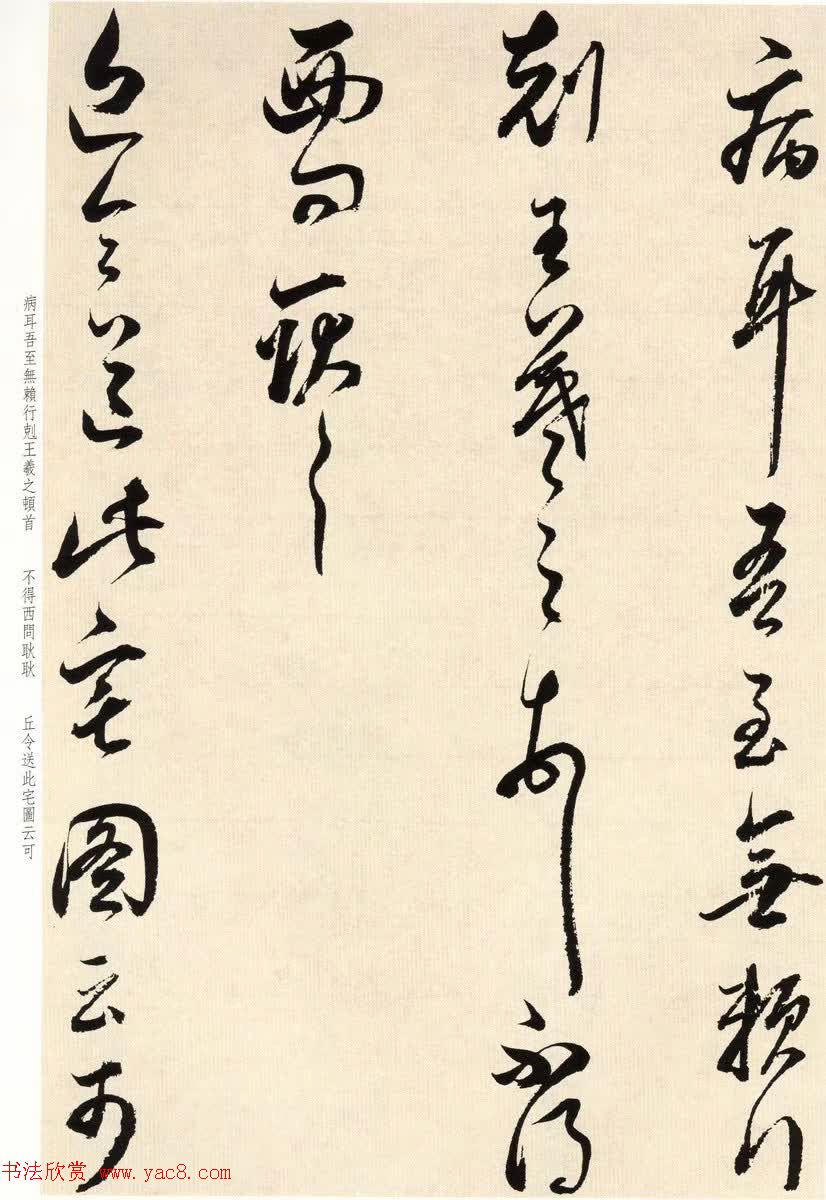 病耳吾至無賴行
剋王羲之頓首不得
西問耿耿
丘令送此宅圖云可
病耳吾至無賴行剋王羲之頓首　不得西問耿耿　丘令送此宅圖云可
书法欣赏 www.yac8.com